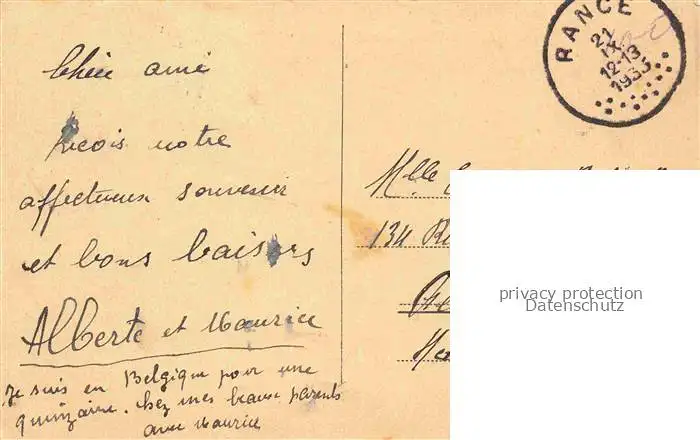 Chère amie
reçois notre
affectueux souvenir
et bons baisers
Alberte et Maurice
Je suis en Belgique pour une
quinzaine. Chez mes beaux parents
avec Maurice
RANCE
21
IX
12-13
1935
Mlle
134
privacy protection
Datenschutz